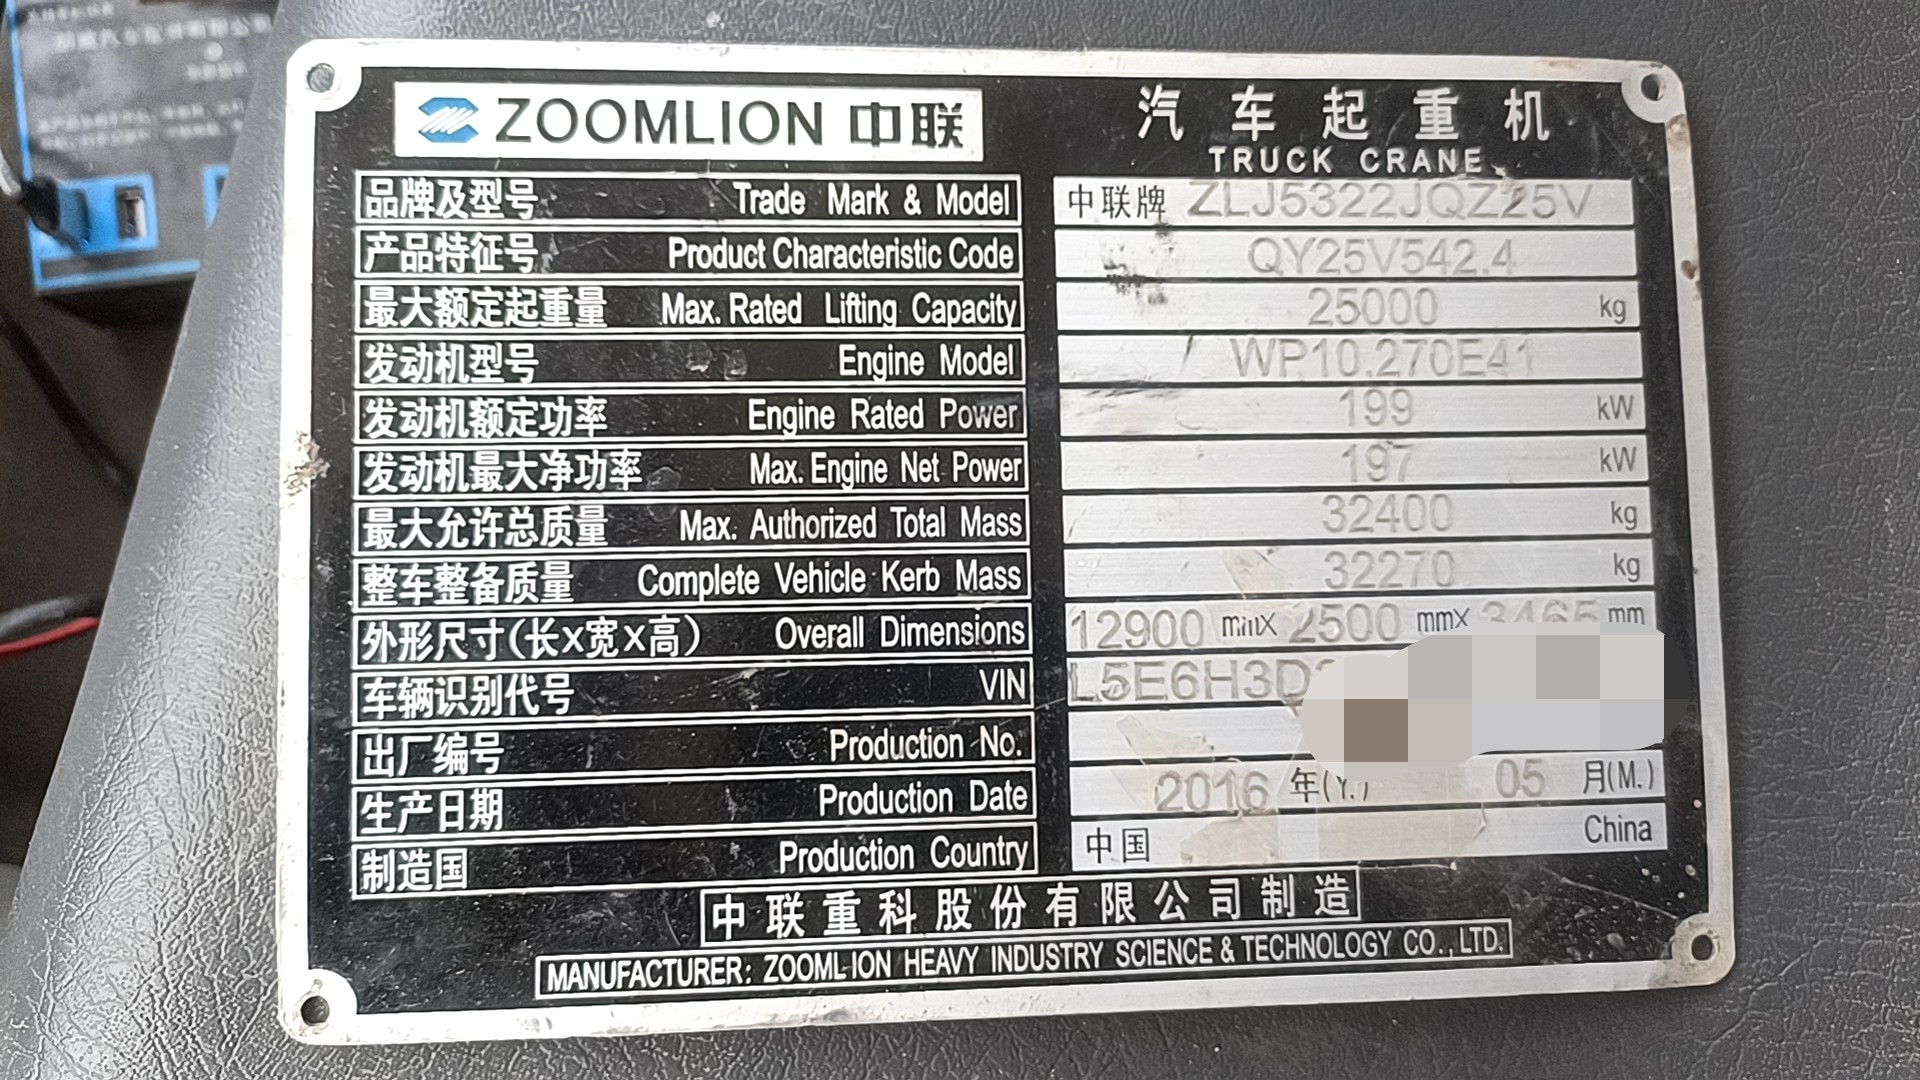 ZOOMLION 中联
汽车起重机
TRUCK CRANE
品牌及型号 Trade Mark & Model 中联牌 ZLJ5322JQZ25V
产品特征号 Product Characteristic Code QY25V542.4
最大额定起重量 Max. Rated Lifting Capacity 25000 kg
发动机型号 Engine Model WP10.270E41
发动机额定功率 Engine Rated Power 199 kW
发动机最大净功率 Max. Engine Net Power 197 kW
最大允许总质量 Max. Authorized Total Mass 32400 kg
整车整备质量 Complete Vehicle Kerb Mass 32270 kg
外形尺寸(长X宽X高) Overall Dimensions 12900 mmX 2500 mmX 3465 mm
车辆识别代号 VIN L5E6H3D
出厂编号 Production No.
生产日期 Production Date 2016 年(Y.) 05 月(M.)
制造国 Production Country 中国 China
中联重科股份有限公司制造
MANUFACTURER: ZOOMLION HEAVY INDUSTRY SCIENCE & TECHNOLOGY CO., LTD.